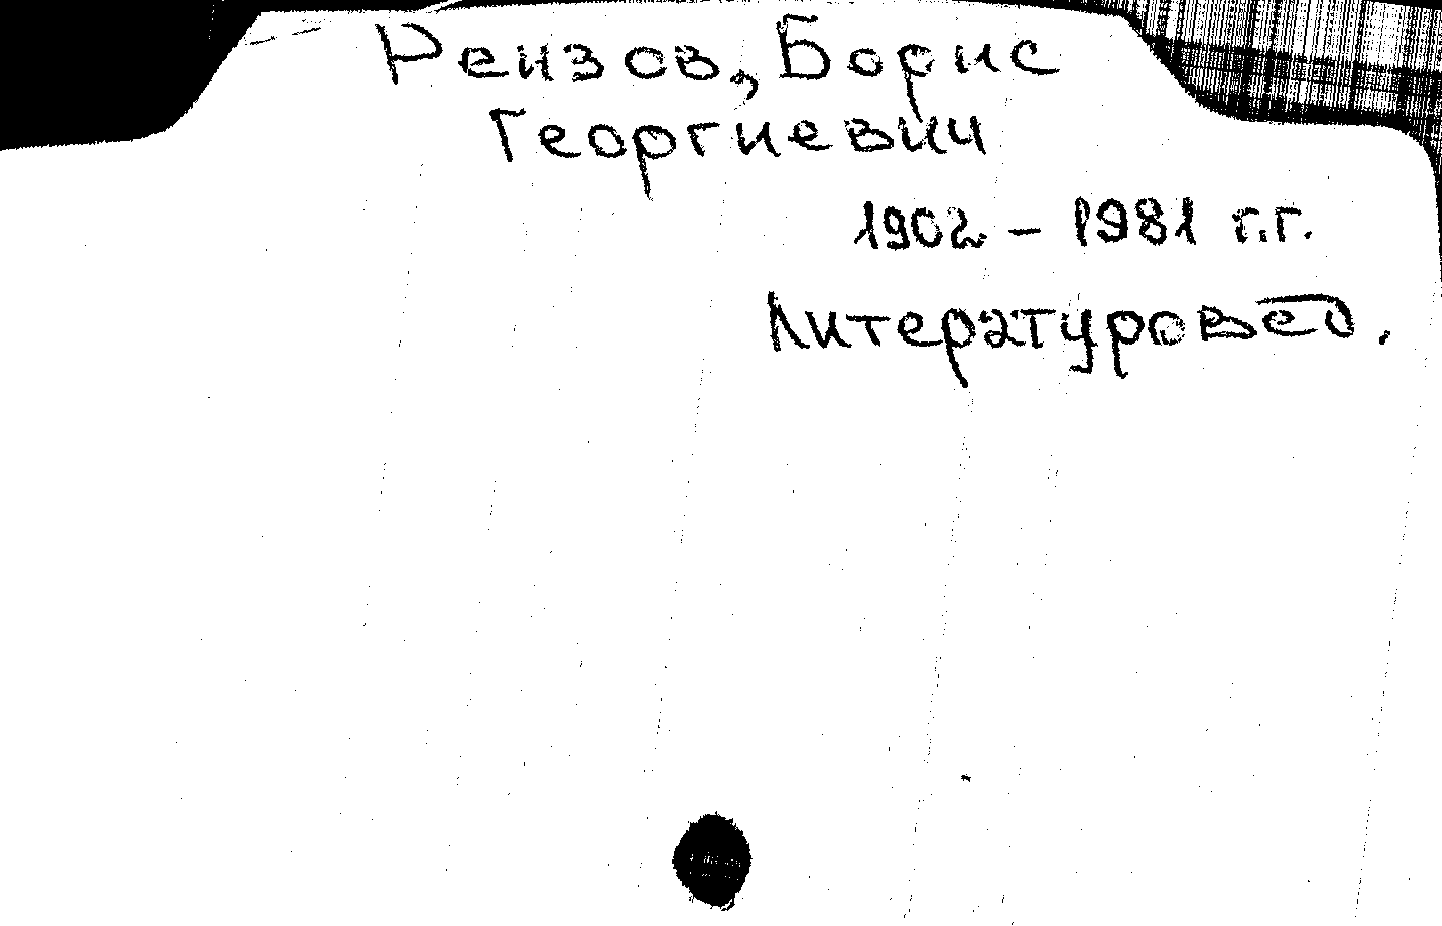 Реизов, Борис
Георгиевич
1902 - 1981 г.г.
Литературовед.